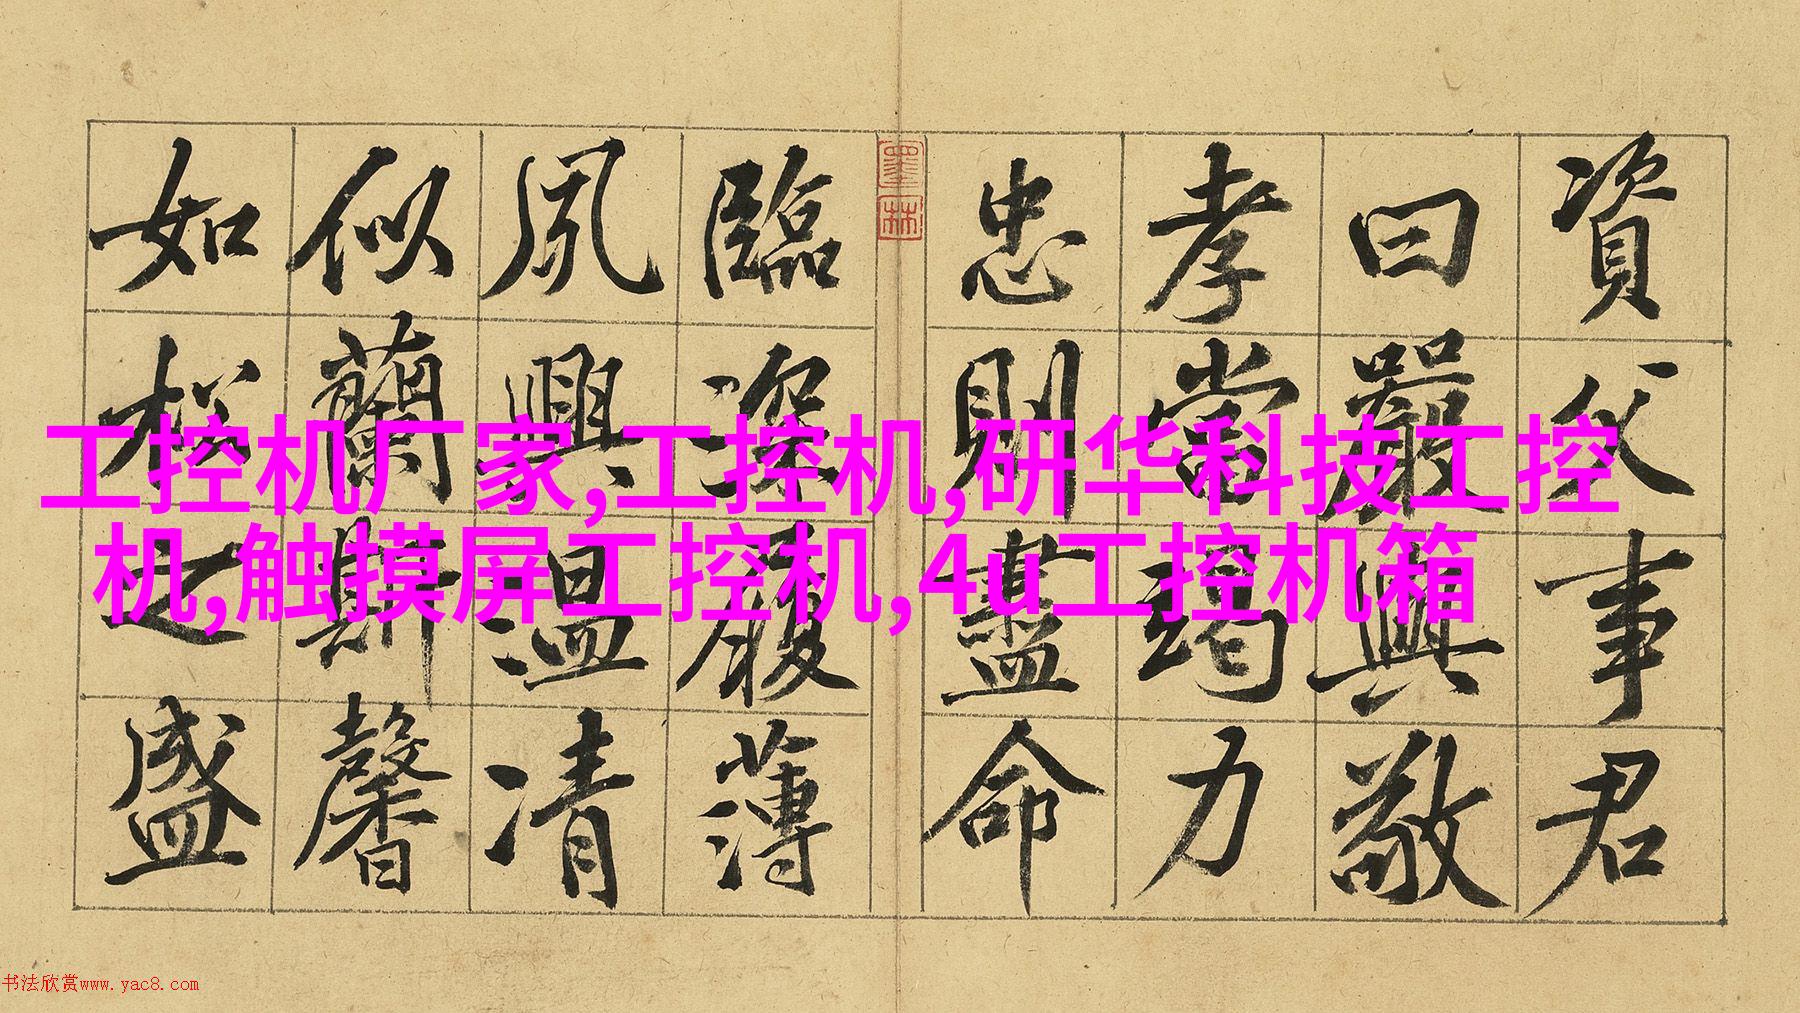 資父事君
曰嚴與敬
孝當竭力
忠則盡命
墨林
臨深履薄
夙興温凊
似蘭斯馨
如松之盛
工控机厂家,工控机,研华科技工控
机,触摸屏工控机,4u工控机箱
书法欣赏www.yac8.com